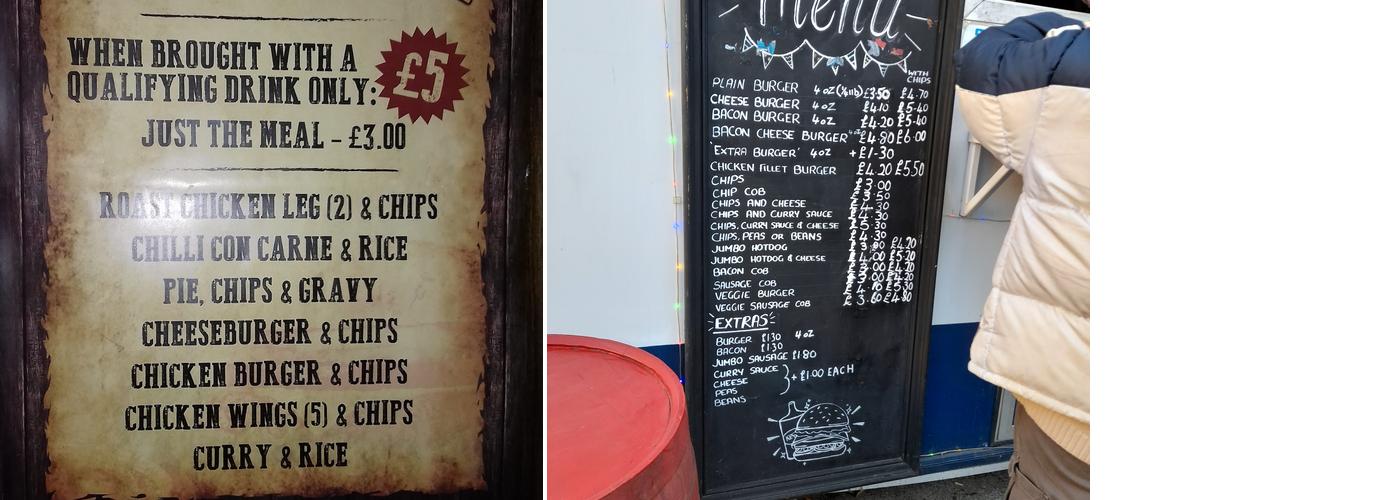 WHEN BROUGHT WITH A
QUALIFYING DRINK ONLY:
£5
JUST THE MEAL - £3.00
ROAST CHICKEN LEG (2) & CHIPS
CHILLI CON CARNE & RICE
PIE, CHIPS & GRAVY
CHEESEBURGER & CHIPS
CHICKEN BURGER & CHIPS
CHICKEN WINGS (5) & CHIPS
CURRY & RICE
menu
WITH CHIPS
PLAIN BURGER 4oz (1/4lb) £3.50 £4.70
CHEESE BURGER 4oz £4.10 £5.40
BACON BURGER 4oz £4.20 £5.40
BACON CHEESE BURGER 4oz £4.80 £6.00
'EXTRA BURGER' 4oz +£1.30
CHICKEN FILLET BURGER £4.20 £5.50
CHIPS £3.00
CHIP COB £3.50
CHIPS AND CHEESE £4.30
CHIPS AND CURRY SAUCE £4.30
CHIPS, CURRY SAUCE & CHEESE £5.30
CHIPS, PEAS OR BEANS £4.30
JUMBO HOTDOG £4.20
JUMBO HOTDOG & CHEESE £5.20
BACON COB
SAUSAGE COB
VEGGIE BURGER £5.30
VEGGIE SAUSAGE COB £3.60 £4.80
EXTRAS
BURGER £1.30 4oz
BACON £1.30
JUMBO SAUSAGE £1.80
CURRY SAUCE
CHEESE + £1.00 EACH
PEAS
BEANS